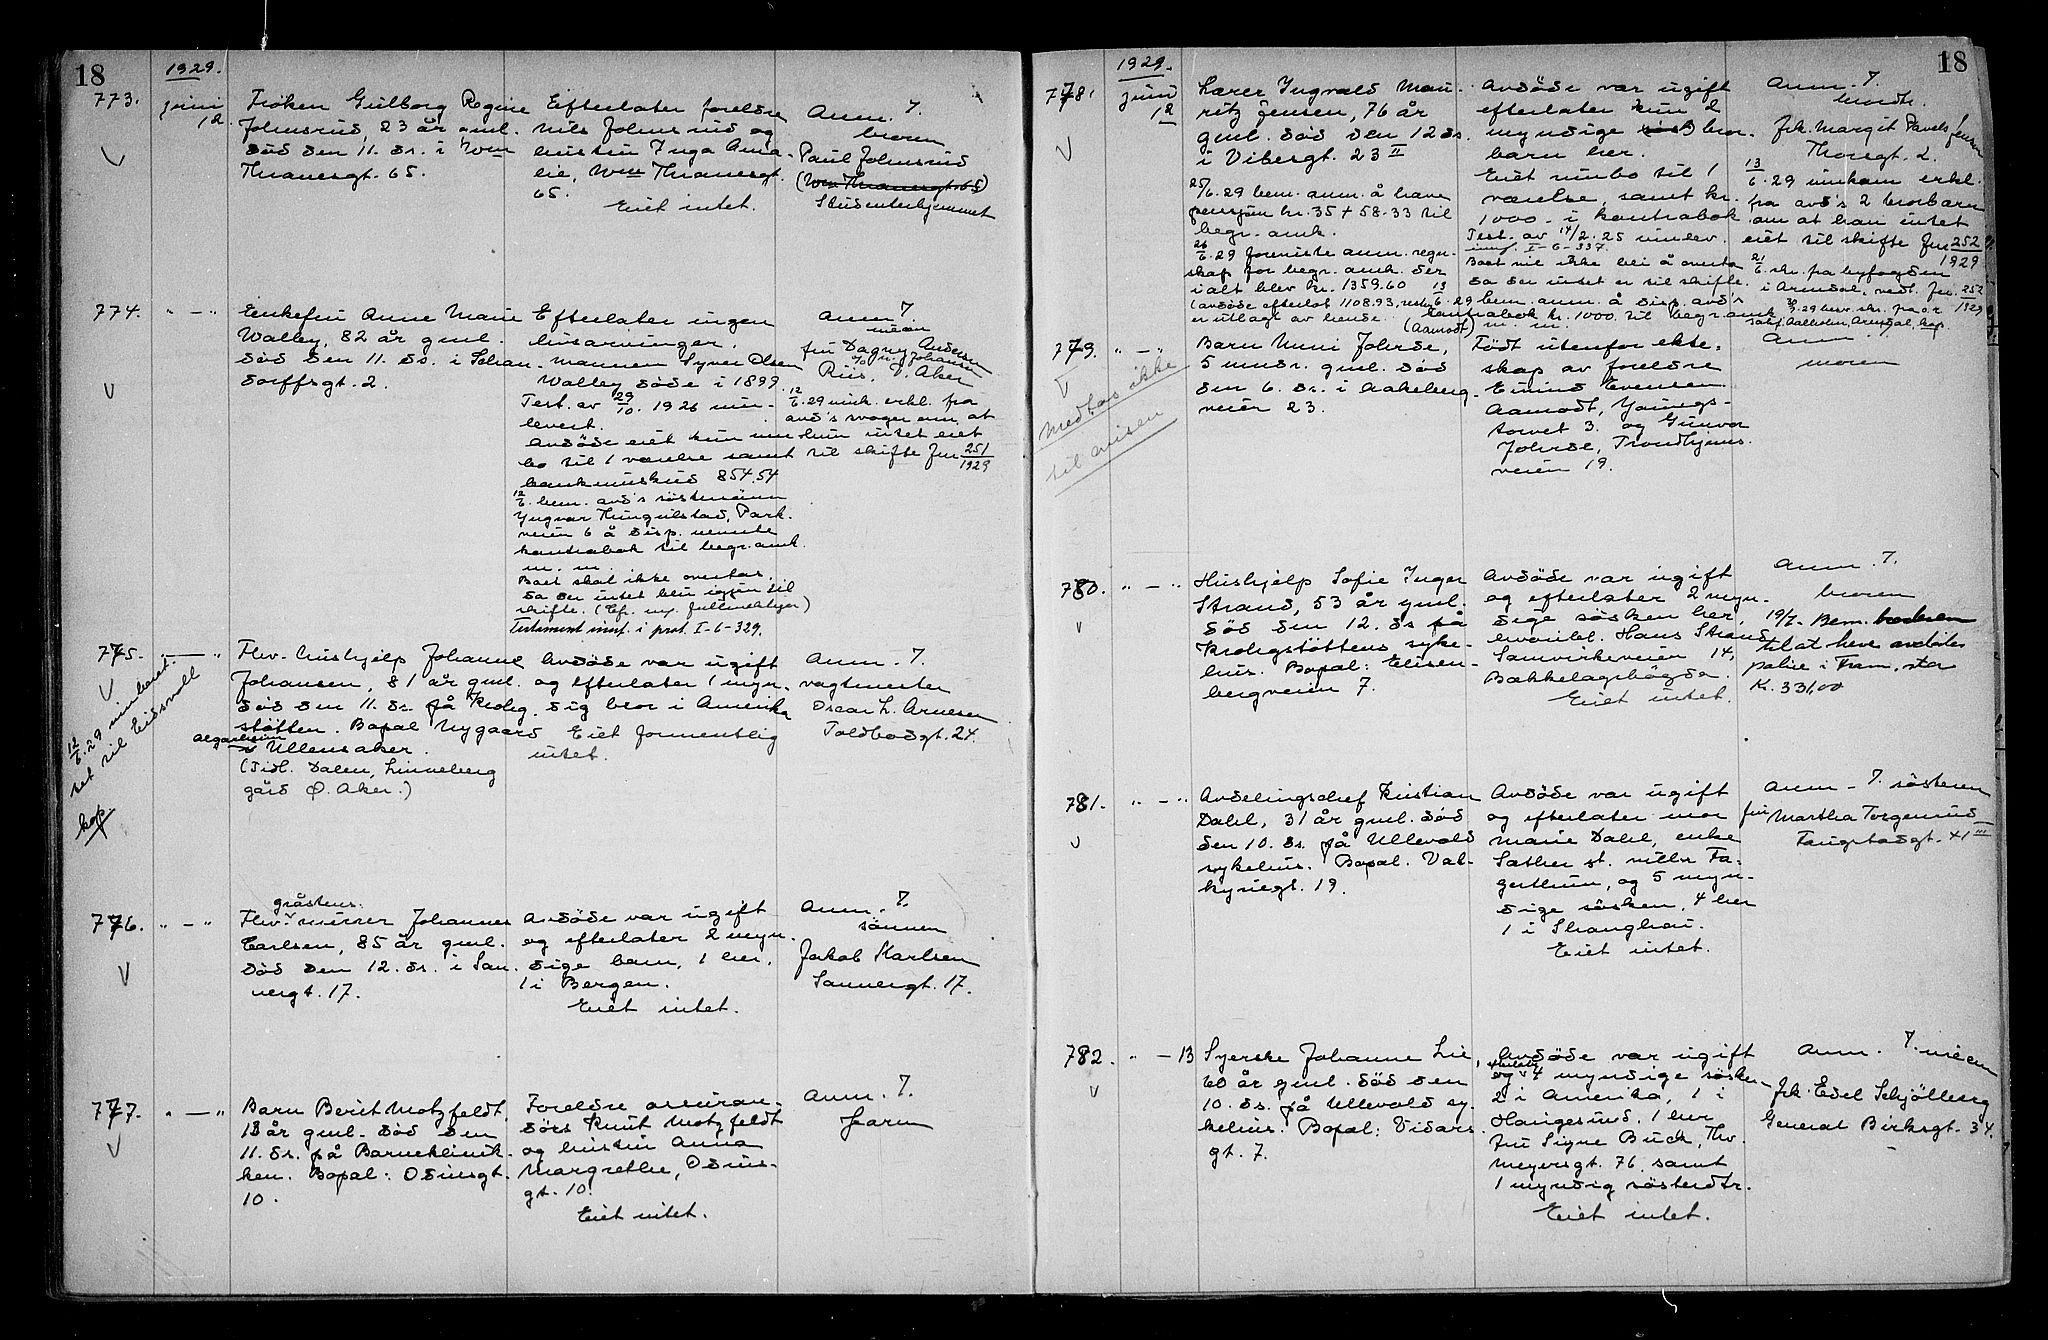 18
1929.
773.
juni
12.
Frøken Gulborg Regine
Johnsrud, 23 år gml.
død den 11. ds. i Wm
Thranesgt. 65.
Efterlater foreldre
Nils Johnsrud og
hustru Inga Ama-
lie, Wm Thranesgt.
65.
Eiet intet.
Anm. 7.
broren
Paul Johnsrud
(Wm Thranesgt. 65)
Studenterhjemmet
774.
" — "
Enkefru Anne Marie
Walley, 82 år gml.
død den 11. ds. i Schan-
dorffsgt. 2.
Efterlater ingen
livsarvinger.
Mannen Syver Olsen
Walley døde i 1899.
Test. av 29/10. 1926 inn-
levert.
Avdøde eiet kun inn-
bo til 1 værelse samt
bankinnskud 854.54
12/6. bem. avd's søstersønn
Yngvar Thingulstad, Park-
veien 6 å disp. nevnte
kontrabok til begr. omk.
m. m.
Boet skal ikke overtas,
da der intet blir igjen til
skifte. (Cf. ny fullmektigen)
Testament innf. i prot. I-6-329.
Anm. 7.
niesen
fru Dagny Andersen
c/o u. Johansen
Riis, V. Aker
12/6.29 innk. erkl. fra
avd's svoger om at
hun intet eiet
til skifte Jnr 251/1929
775.
" — "
12/6.29 innberet-
tet til Eidsvoll
kop
Fhv. hushjelp Johanne
Johansen, 81 år gml.
død den 11. ds. på Prolog
støtten. Bopal Nygaard
Algarheim
i Ullensaker.
(Tidl. Dalen, Linneberg
gård Ø. Aker.)
Avdøde var ugift
og efterlater 1 myn-
dig bror i Amerika
Eiet formentlig
intet.
Anm. 7.
vagtmester
Oscar L. Arnesen
Toldbodgt. 24.
776.
" — "
gråstens
Fhv. murer Johannes
Carlsen, 85 år gml.
død den 12. ds. i San-
nergt. 17.
Avdøde var ugift
og efterlater 2 myn-
dige barn, 1 her,
1 i Bergen.
Eiet intet.
Anm. 7.
sønnen
Jakob Karlsen
Sannergt. 17.
777.
" — "
Barn Berit Motzfeldt
13 år gml. død den
11. ds. på Barneklinik-
ken. Bopal: Odinsgt.
10.
Foreldre assuran-
dørs Knut Motzfeldt
og hustru Anna
Margrethe, Odins-
gt. 10.
Eiet intet.
Anm. 7.
faren
18
1929.
778.
juni
12
Lærer Ingvald Mau-
ritz Jensen, 76 år
gml. død den 12 ds.
i Vibesgt. 23 II
25/6.29 bem. anm. å have
pensjon kr. 35 + 58.33 til
begr. omk.
26/6.29 forviste anm. regn-
skap for begr. omk. der
ialt blev kr. 1359.60
(avdøde efterlot 1108.93, resten
er utlagt av hende.
Avdøde var ugift
efterlater kun 2
myndige bror-
barn her.
Eiet innbo til 1
værelse, samt kr.
1000.- i kontrabok.
Test. av 14/2.25 innlev.
innf. I-6-337.
Boet vil ikke bli å overta
da der intet er til skifte.
13/6.29 bem. anm. å disp. avd's
kontrabok kr. 1000 til begr. omk.
m. m.
Anm. 7.
brordtr.
frk. Margit Pavels Jensen
Thorsgt. 2.
13/6.29 innkom erkl.
fra avd's 2 brorbarn
om at han intet
eiet til skifte Jnr 252/1929
21/6. skr. fra byfogden
i Arendal, vedl. Jnr. 252/1929
779.
" — "
Medtas ikke
til avisen
(Aamodt)
Barn Unni Johrde,
5 mndr. gml. død
den 6. ds. i Aakeberg-
veien 23.
Født utenfor ekte-
skap av foreldre
Eivind Evensen
Aamodt, Youngs-
torvet 3. og Gunvor
Johrde, Trondhjems-
veien 19.
Anm. 7.
moren
780.
" — "
Hushjelp Sofie Inger
Strand, 53 år gml.
død den 12. ds på
Prologstøttens syke-
hus. Bopal: Elisen-
bergveien 7.
Avdøde var ugift
og efterlater 2 myn-
dige søsken her,
Hans Strand
Samvirkeveien 14,
Bækkelagshøgda.
Eiet intet.
Anm. 7.
broren
19/7. Bem. broderen
til at heve avdødes
polise i Fram, stor
Kr. 331,00
781.
" — "
Avdelingschef Kristian
Dahl, 31 år gml. død
den 10. ds. på Ullevold
sykehus. Bopal. Val-
kyriegt. 19.
Avdøde var ugift
og efterlater mor
Marie Dahl, enke
Sæther st. villa Fa-
gertun, og 5 myn-
dige søsken, 4 her
1 i Shanghai.
Eiet intet.
Anm. 7. søsteren
fru Martha Torgersrud
Faugstadgt. 41 III
782.
" — 13
Syerske Johanne Lie,
60 år gml. død den
10. ds. på Ullevold sy-
kehus. Bopal: Vidars
gt. 7.
Avdøde var ugift
efterlater
og 4 myndige søsken
2 i Amerika, 1 i
Haugesund, 1 her
fru Signe Buck, Thv.
Meyersgt. 76, samt
1 myndig søsterdtr.
Eiet intet.
Anm. 7. niesen
frk. Edel Schjölberg
General Birksgt. 34.